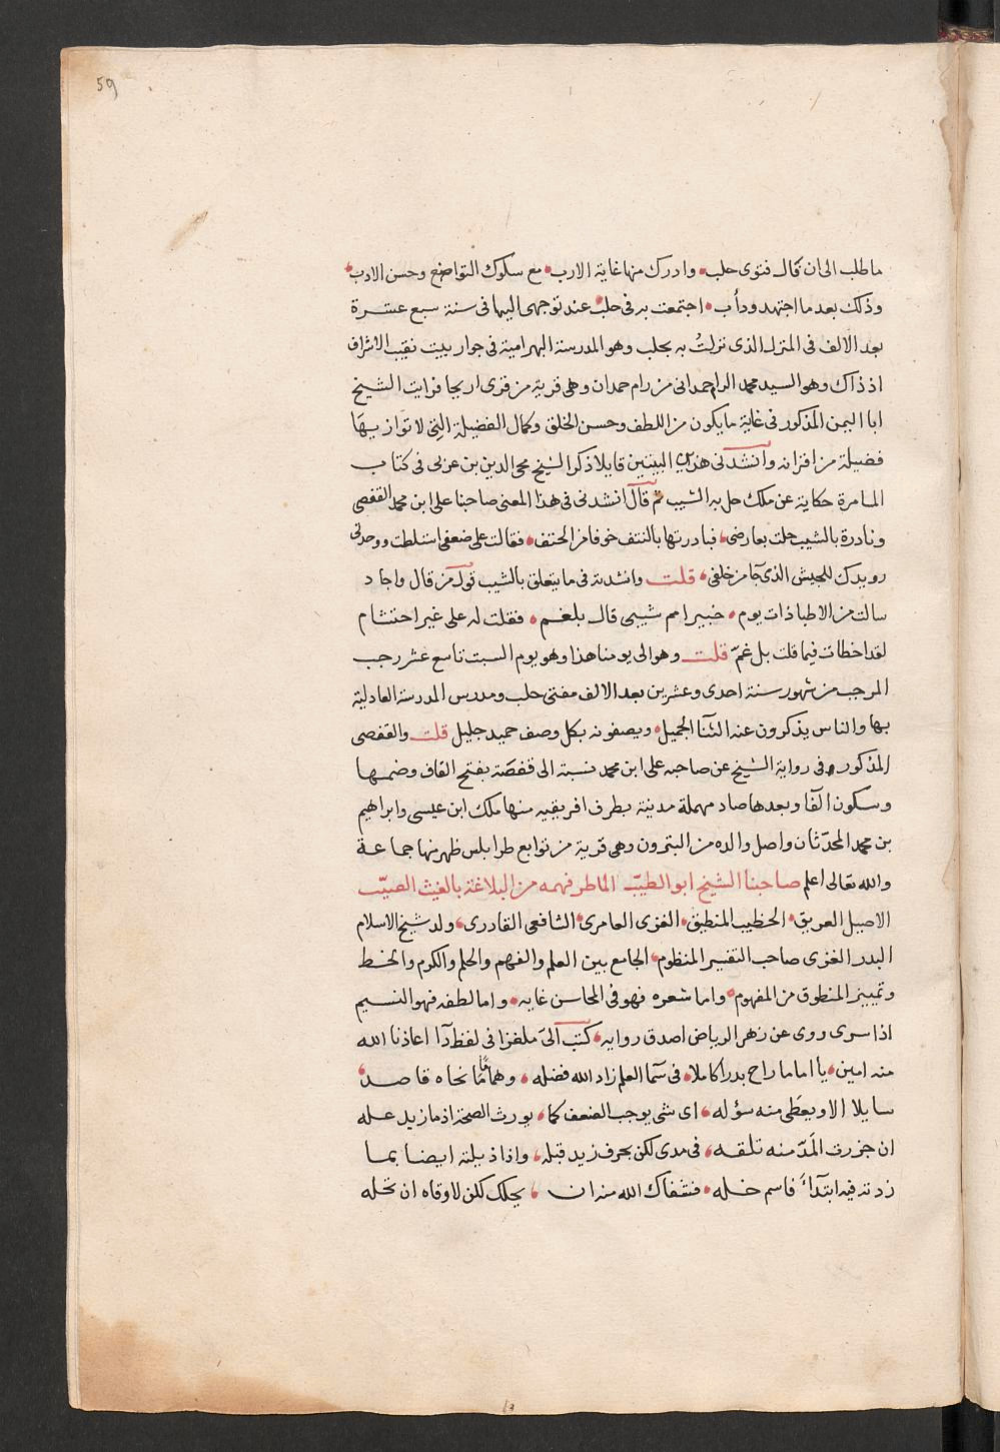 59
ما طلب الى ان قال فتوى حلب وادرك منها غاية الارب مع سلوك التواضع وحسن الادب
وذلك بعد ما اجتهد ودأب اجتمعت به فى حلب عند توجهى اليها فى سنة سبع عشرة
بعد الالف فى المنزل الذى نزلتُ به بحلب وهو المدرسة البهرامية فى جوار بيت نقيب الاشراف
اذ ذاك وهو السيد محمد الرامحمدانى من رام حمدان وهى قرية من قرى اريحا فرايت الشيخ
ابا اليمن المذكور فى غاية ما يكون من اللطف وحسن الخلق وكمال الفضيلة التى لا توازيها
فضيلة من اقرانه وانشدنى هذين البيتين قايلا ذكر الشيخ محى الدين بن عربى فى كتاب
المسامرة حكاية عن ملك حل به الشيب ثم قال انشدنى فى هذا المعنى صاحبنا على ابن محمد القفصى
ونادرة بالشيب حلت بعارضى فبادرتها بالنتف خوفا من الحتف فقالت على ضعفى استطلت ووحدتى
رويدك للجيش الذى جا من خلفى قلت وانشدته فى ما يتعلق بالشيب قول من قال واجاد
سالت من الاطبا ذات يوم خبيرا مم شيبى قال بلغم فقلت له على غير احتشام
لقد اخطات فيما قلت بل غمّ قلت وهو الى يومنا هذا وهو يوم السبت تاسع عشر رجب
المرجب من شهور سنة احدى وعشرين بعد الالف مفتى حلب ومدرس المدرسة العادلية
بها والناس يذكرون عنه الثنا الجميل ويصفونه بكل وصف حميد جليل قلت والقفصى
المذكور فى رواية الشيخ عن صاحبه على ابن محمد نسبة الى قفصَة بفتح القاف وضمها
وسكون الفا وبعدها صاد مهملة مدينة بطرف افريقيه منها ملك ابن عيسى وابراهيم
بن محمد المحدّثان واصل والده من البترون وهى قرية من توابع طرابلس ظهر منها جماعة
والله تعالى اعلم صاحبنا الشيخ ابو الطيّب الماطر فهمه من البلاغة بالغيث الصيّب
الاصيل العريق الخطيب المنطيق الغزى العامرى الشافعى القادرى ولد شيخ الاسلام
البدر الغزى صاحب التفسير المنظوم الجامع بين العلم والفهم والحلم والكرم والخط
وتمييز المنطوق من المفهوم واما شعره فهو فى المحاسن غايه واما لطفه فهو النسيم
اذا سرى وروى عن زهر الرياض اصدق روايه كتب الىّ ملغزا فى لفظ دآ اعاذنا الله
منه امين يا اماما راح بدرا كاملا فى سما العلم زاد الله فضله وهماما ما نحاه قاصد
سايلا الا ويعطَى منه سؤله اى شى يوجب الضعف كما يورث الصحة اذ ما زيد عله
ان جزرت المَدّ منه تلقه فى مدى لكن بحرف زيد قبله واذا ذيلته ايضا بما
زدته فيه ابتدآءً فاسم خله فشفاك الله منه ان يحلك لكن لا وقاه ان تحله